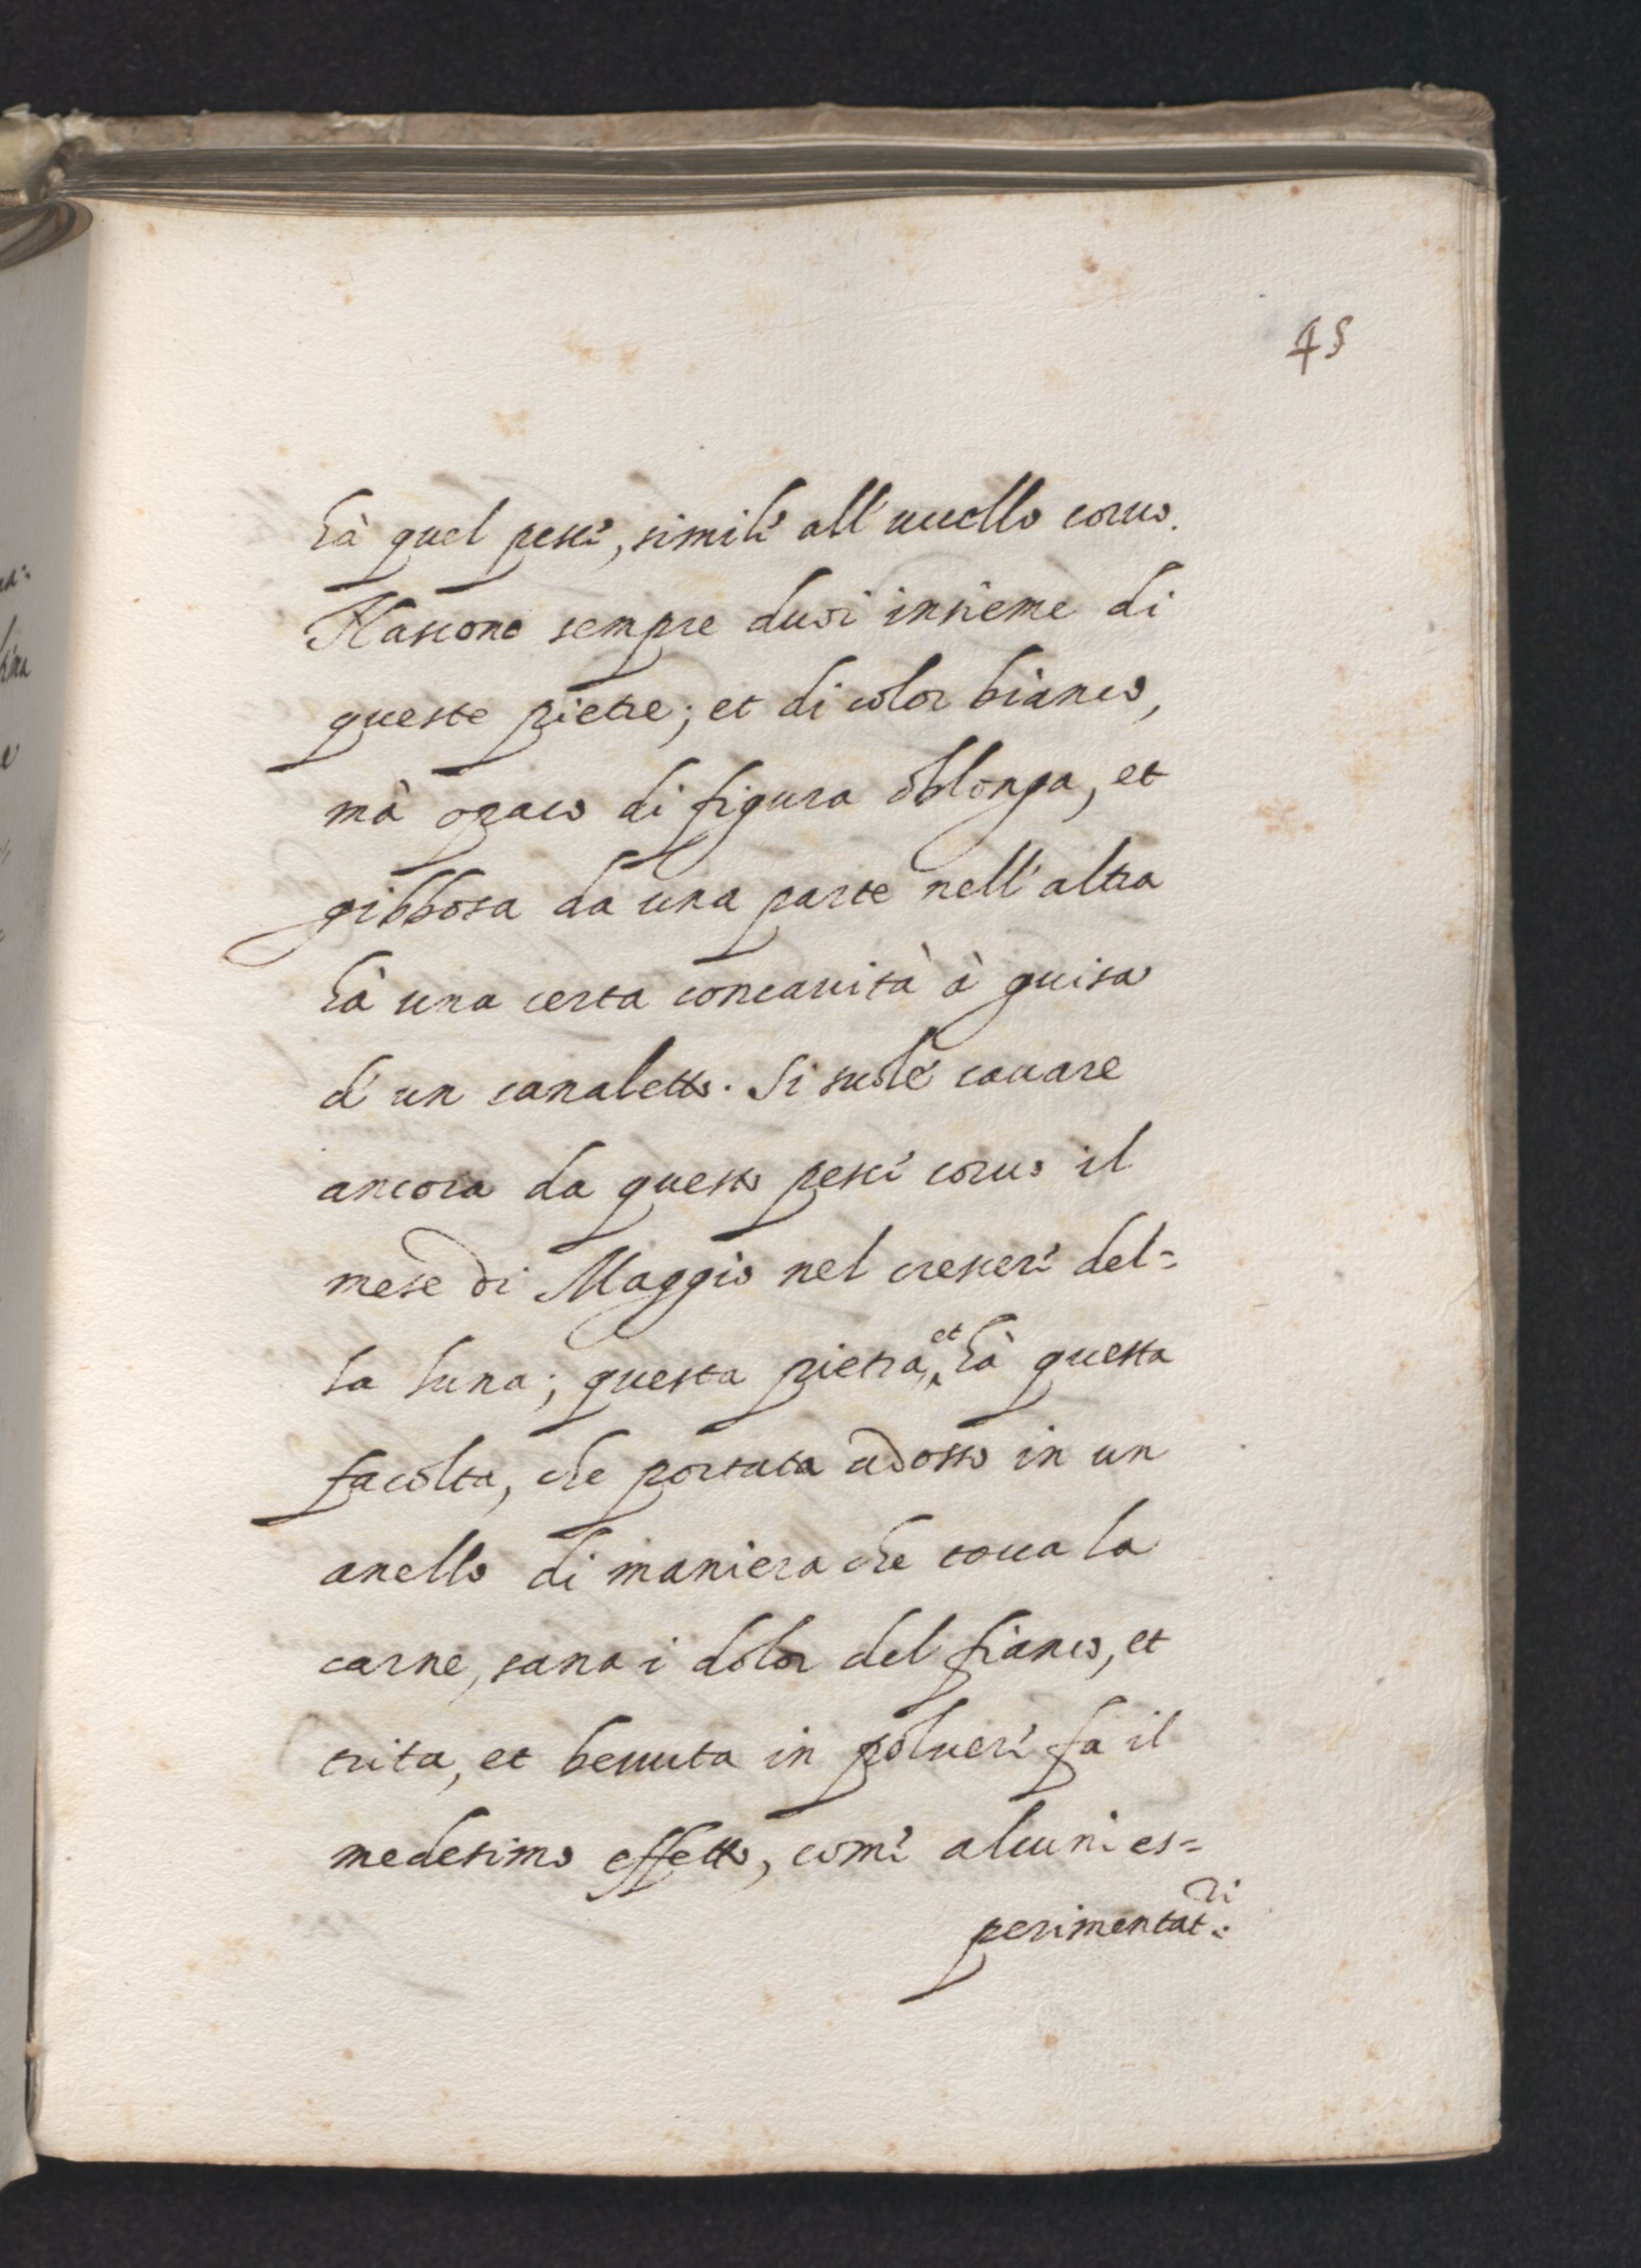 45
hà quel pesce, simile all'uccello coruo.
Nascono sempre duoi insieme di
queste pietre; et di color bianco,
mà opaco di figura oblonga, et
gibbosa da una parte nell'altra
hà una certa concauità à guisa
d'un canaletto. Si suole cauare
ancora da questo pesce coruo il
mese di Maggio nel crescere del=
la luna; questa pietra, et hà questa
facolta, che portata adosso in un
anello di maniera che tocca la
carne, sana i dolor del fianco, et
trita, et beuuta in poluere fa il
medesimo effetto, come alcuni es=
perimentatri: